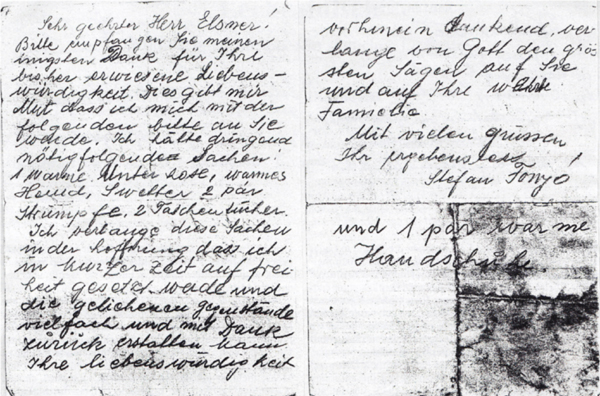 Sehr geehrter Herr Elsner!
Bitte empfangen Sie meinen
innigsten Dank für Ihre
bisher erwiesene Liebens-
würdigkeit. Dies gibt mir
Mut dass ich mich mit der
folgenden bitte an Sie
wende. Ich hätte dringend
nötig folgende Sachen:
1 Warme Unter Hose, warmes
Hemd, Swetter 2 pár
Strümpfe, 2 Taschentücher.
Ich verlange diese Sachen
in der hoffnung dass ich
in kurzer Zeit auf frei
heit gesetzt wede und
die geliehenen gegenstände
vielfach und mit Dank
zürück erstatten kann.
Ihre liebenswürdigkeit
vorhinein dankend, ver
lange von Gott den grös
sten Sägen auf Sie
und auf Ihre werte
Famielie
Mit vielen grüssen
Ihr ergebenster
Stefan Tonyó!
und 1 pár warme
Handschuhe